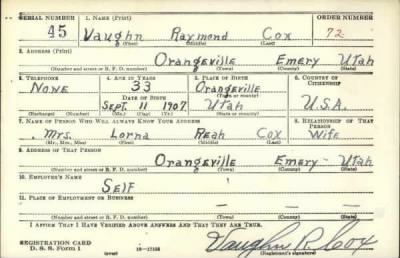 SERIAL NUMBER 1. NAME (Print) ORDER NUMBER
45 Vaughn Raymond Cox 72
(First) (Middle) (Last)
2. ADDRESS (Print)
Orangeville Emery Utah
(Number and street or R. F. D. number) (Town) (County) (State)
3. TELEPHONE 4. AGE IN YEARS 5. PLACE OF BIRTH 6. COUNTRY OF CITIZENSHIP
None 33 Orangeville
DATE OF BIRTH (Town or county)
Sept. 11 1907 Utah U.S.A.
(Exchange) (Number) (Mo.) (Day) (Yr.) (State or country)
7. NAME OF PERSON WHO WILL ALWAYS KNOW YOUR ADDRESS 8. RELATIONSHIP OF THAT PERSON
Mrs. Lorna Reah Cox Wife
(Mr., Mrs., Miss) (First) (Middle) (Last)
9. ADDRESS OF THAT PERSON
Orangeville Emery Utah
(Number and street or R. F. D. number) (Town) (County) (State)
10. EMPLOYER'S NAME
Self
11. PLACE OF EMPLOYMENT OR BUSINESS
(Number and street or R. F. D. number) (Town) (County) (State)
I AFFIRM THAT I HAVE VERIFIED ABOVE ANSWERS AND THAT THEY ARE TRUE.
REGISTRATION CARD
D. S. S. Form 1 (over) 16—17105 Vaughn R. Cox
(Registrant's signature)